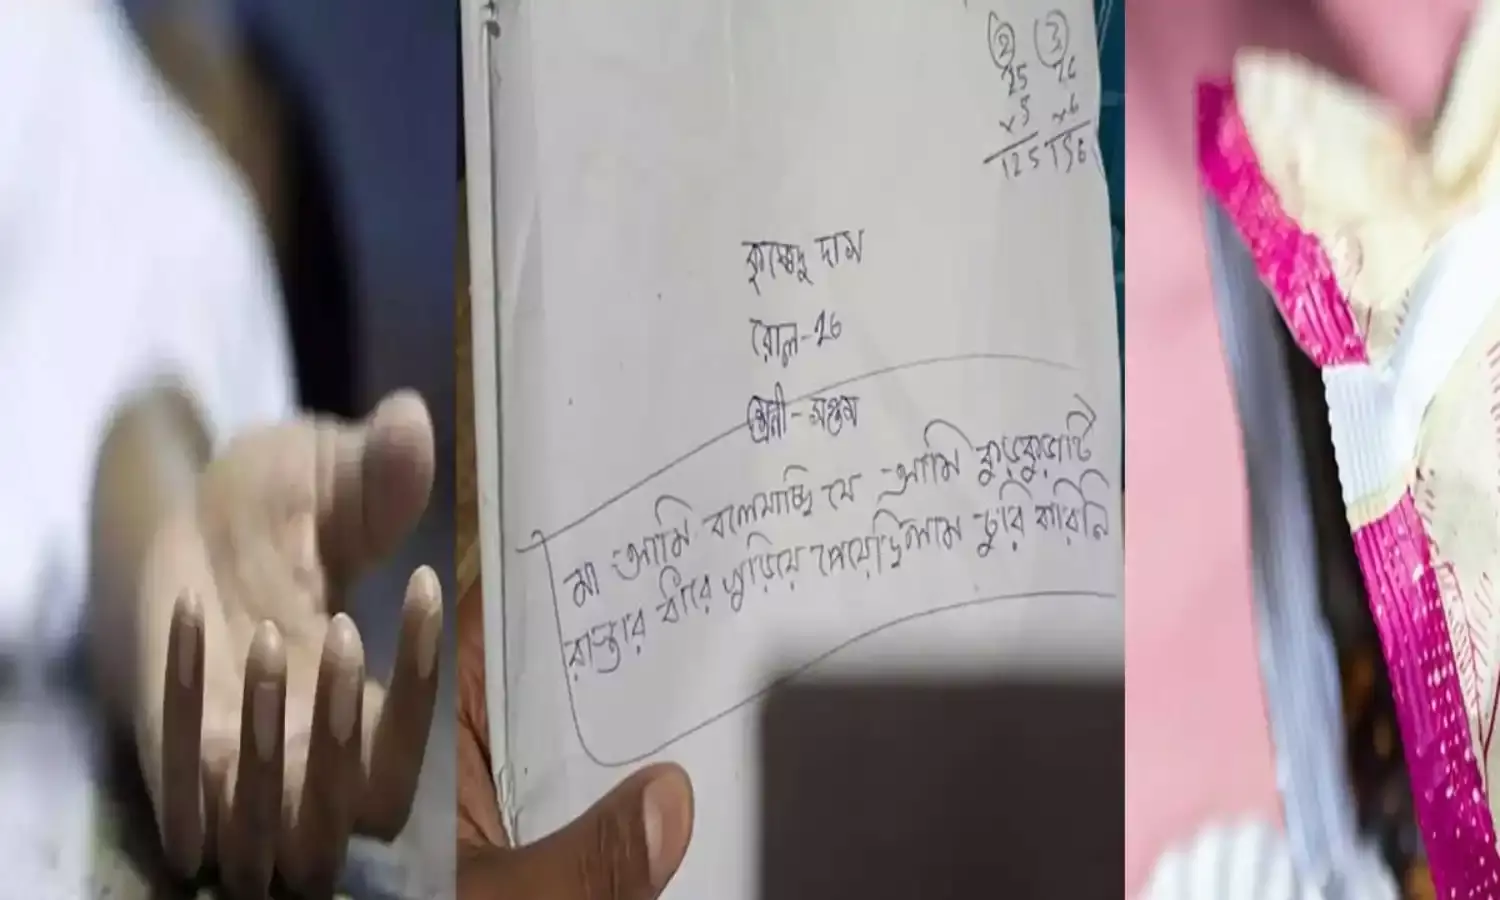 ② ③
25 26
x5 x6
125 156
কৃষ্ণেন্দু দাস
রোল-26
শ্রেনী-সপ্তম
মা আমি বলেযাচ্ছি যে আমি কুড়কুড়াটি
রাস্তার ধারে কুড়িয়ে পেয়েছিলাম চুরি করিনি